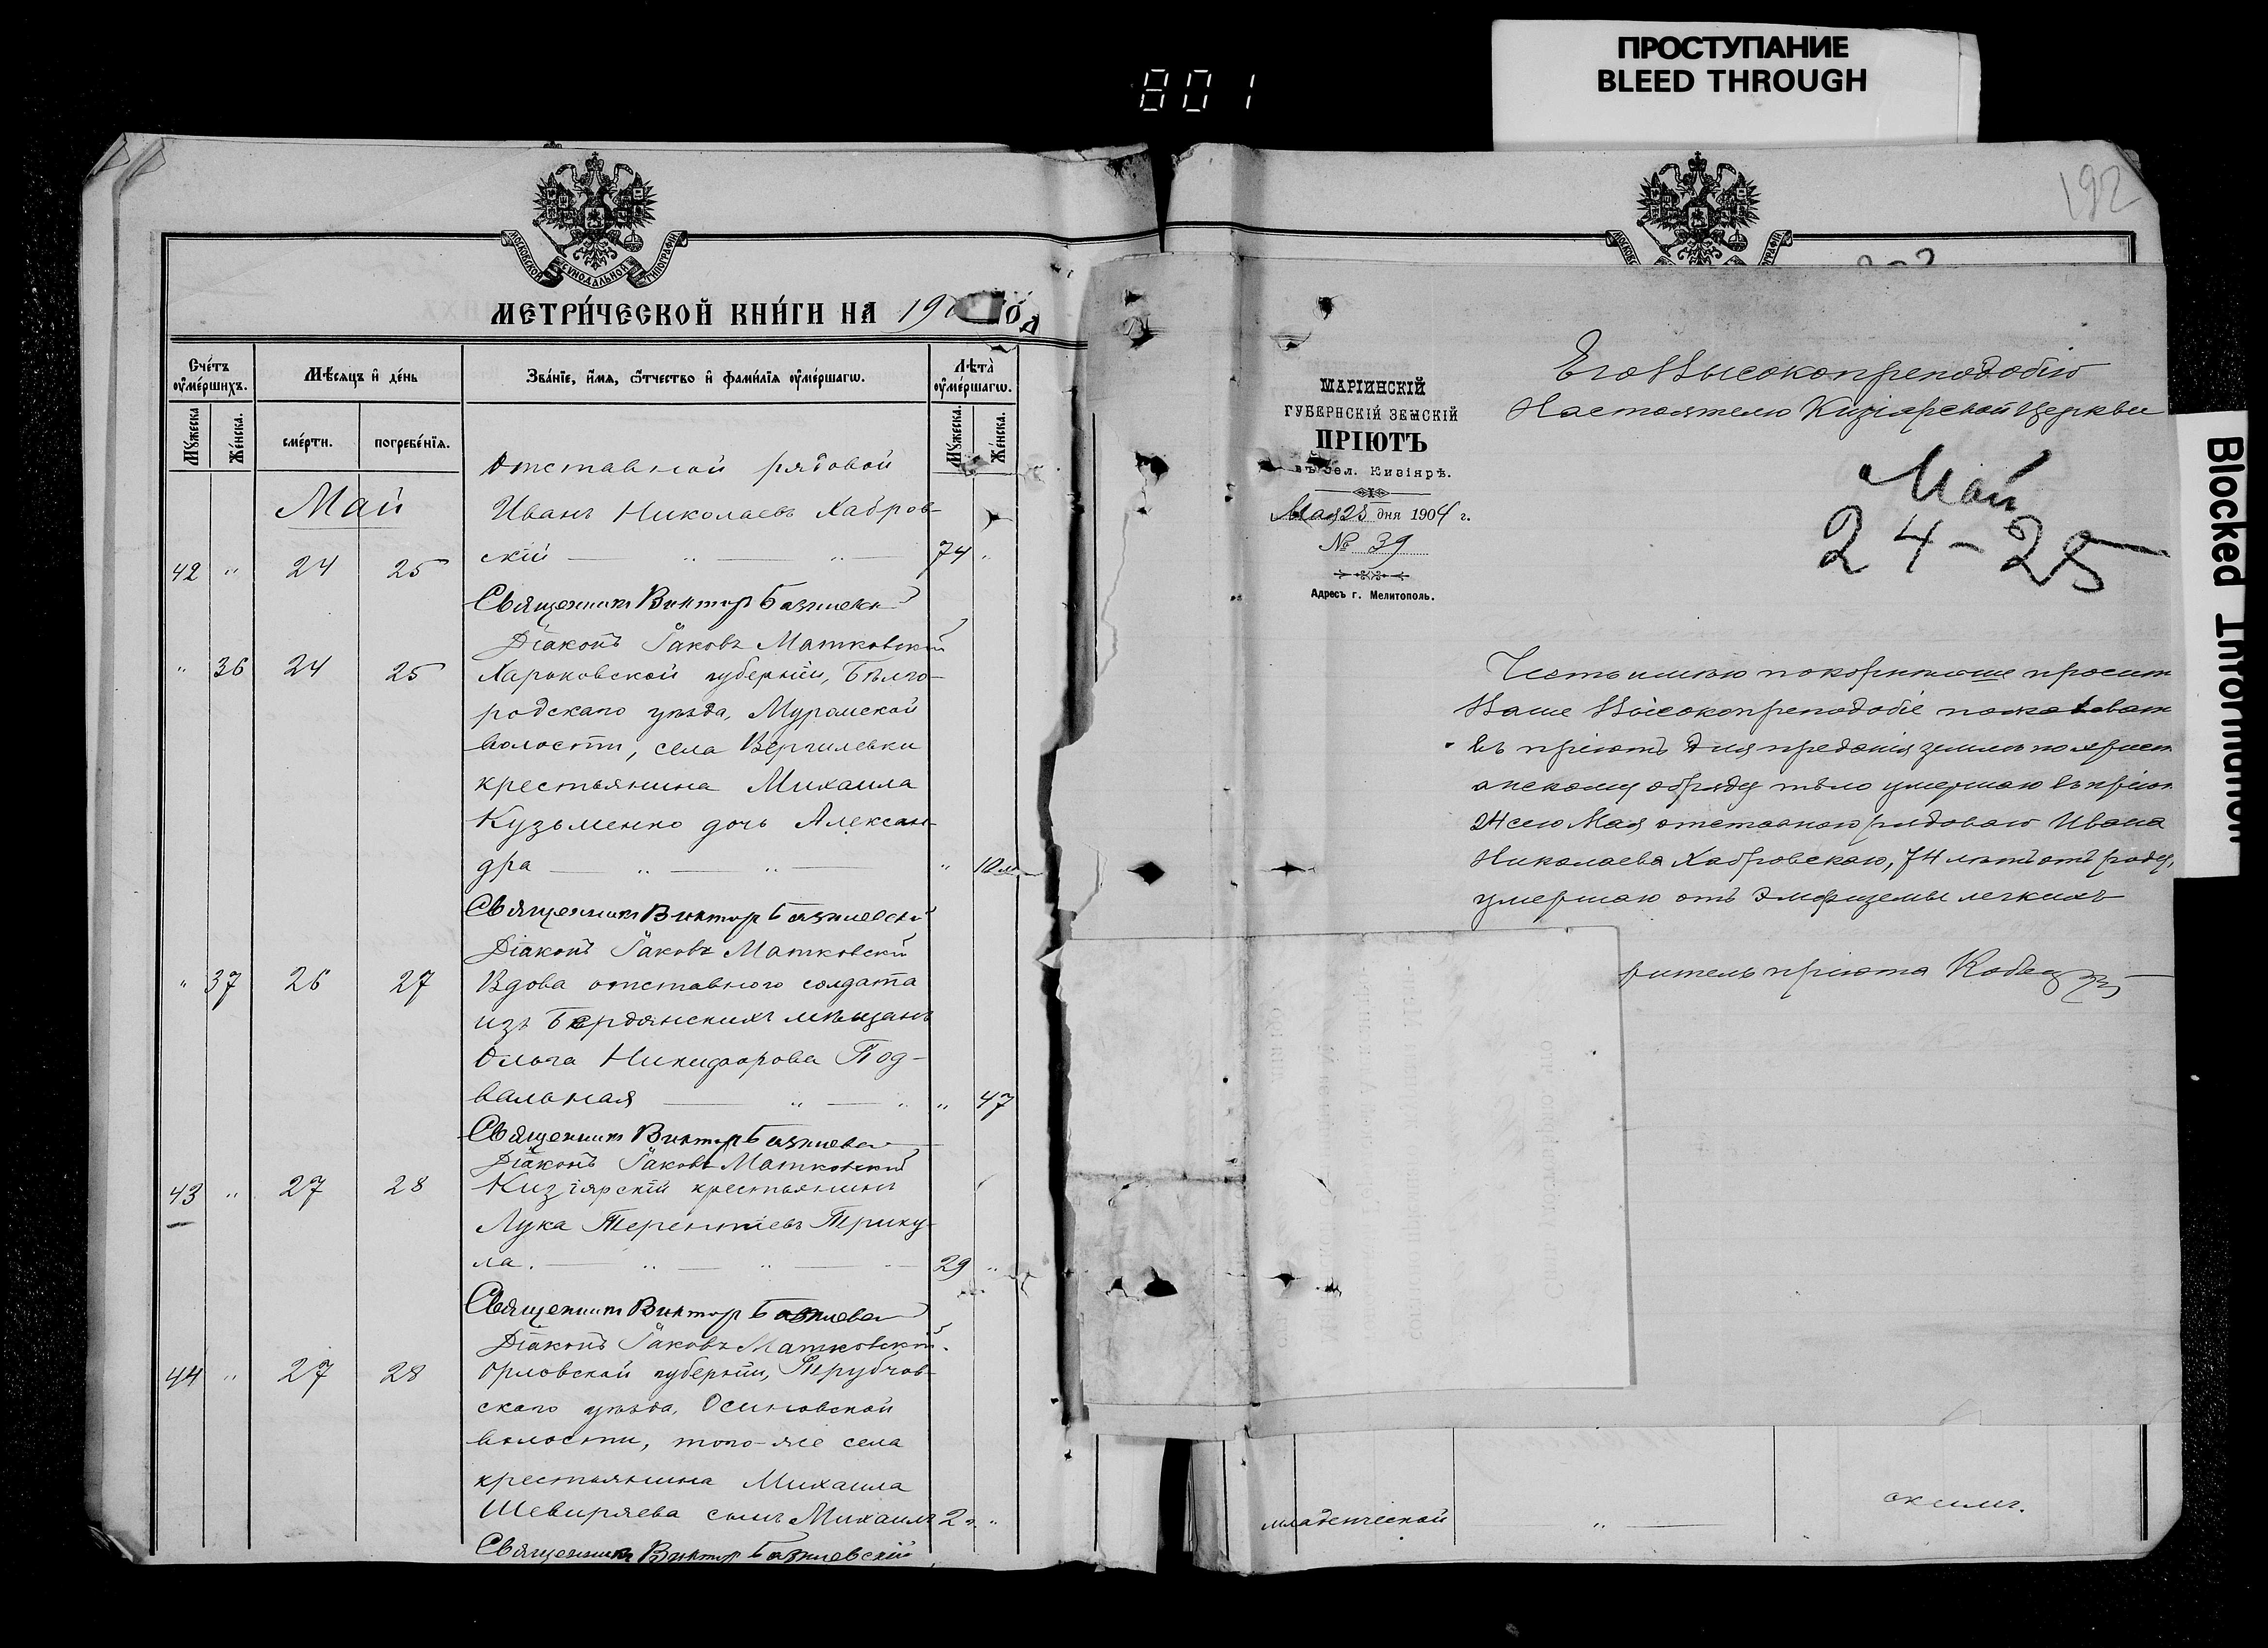 ПРОСТУПАНИЕ
BLEED THROUGH
801
192
Blocked Information
МОСКОВСКОЙ СУНОДАЛЬНОЙ ТИПОГРАФІИ
МЕТРИ́ЧЕСКОЙ КНИ́ГИ НА 190
Сче́тъ ѹ҆ме́ршихъ.
Мѣ́сяцъ и҆ де́нь
Зва́нїе, и҆́мѧ, ѻ҆́тчество и҆ фами́лїѧ ѹ҆ме́ршагѡ.
Лѣ́та ѹ҆ме́ршагѡ.
Мꙋ́жеска
Же́нска.
сме́рти.
погребе́нїѧ.
Мꙋ́жеска.
Же́нска.
Май
Отставной рядовой
Иванъ Николаевъ Хабров-
42 " 24 25 скій — " — " — 74 "
Священникъ Викторъ Базилевскій
Діаконъ Іаковъ Матковскій
" 36 24 25 Харьковской губерніи, Бѣлго-
родскаго уѣзда, Муромской
волости, села Вергилевки
крестьянина Михаила
Кузьменко дочь Алексан-
дра — " — " — " 10 м
Священникъ Викторъ Базилевскій
Діаконъ Іаковъ Матковскій
" 37 26 27 Вдова отставного солдата
изъ Бердянскихъ мѣщанъ
Ольга Никифорова Под-
вальная — " — " " 47
Священникъ Викторъ Базилевскій
Діаконъ Іаковъ Матковскій
43 " 27 28 Кизіярскій крестьянинъ
Лука Терентіевъ Трику-
ла. — " — " — 29 "
Священникъ Викторъ Базилевскій
Діаконъ Іаковъ Матковскій.
44 " 27 28 Орловской губерніи, Трубчев-
скаго уѣзда, Осиновской
волости, того-же села
крестьянина Михаила
Шевиряева сынъ Михаилъ 2 "
Священникъ Викторъ Базилевскій
МАРІИНСКІЙ
ГУБЕРНСКІЙ ЗЕМСКІЙ
ПРІЮТЪ
въ сел. Кизіярѣ.
Мая 25 дня 1904 г.
№ 39
Адресъ г. Мелитополь.
Его Высокопреподобію
Настоятелю Кизіярской Церкви
Май
24-25
Честь имѣю покорнѣйше просить
Ваше Высокопреподобіе пожаловать
въ пріютъ для преданія землѣ по христі
анскому обряду тѣло умершаго въ пріют
24 сего Мая отставного рядоваго Ивана
Николаева Хабровскаго, 74 лѣтъ отъ роду,
умершаго отъ Эмфиземы легкихъ
ритель пріюта
младенческой "